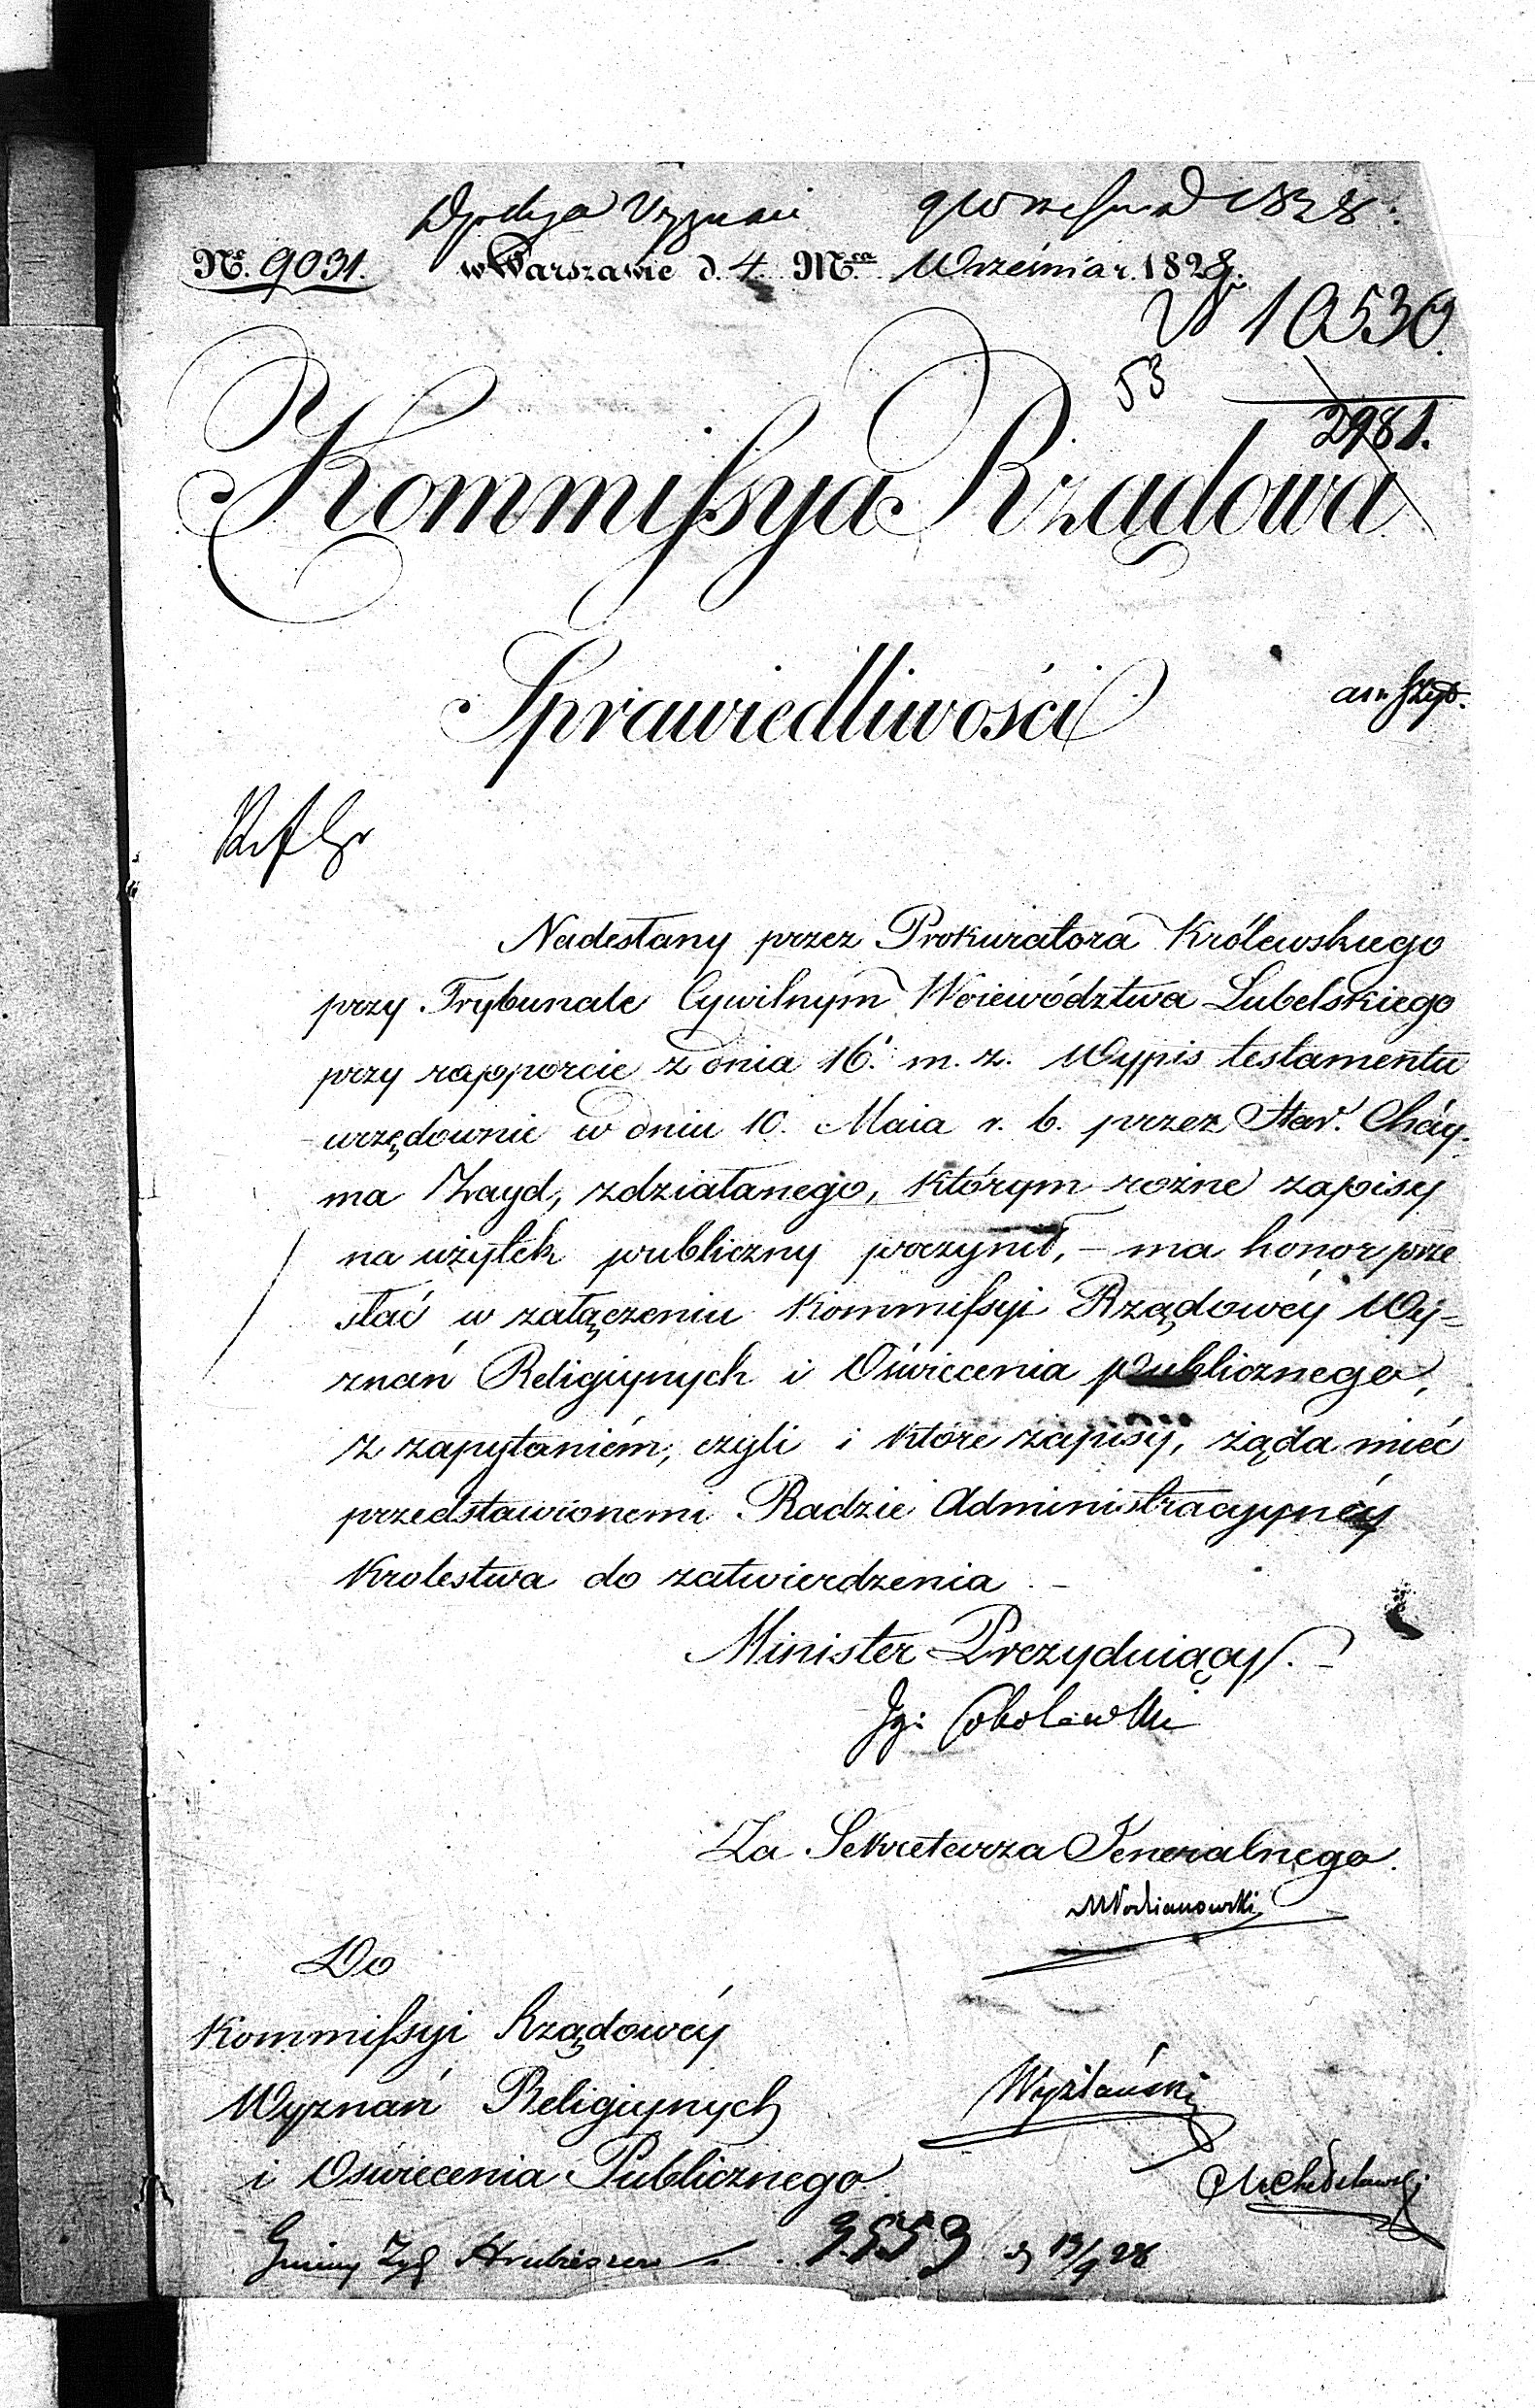 9 Września 1828.
No. 9031. w Warszawie d. 4. Mca Września r. 1828.
N 10530.
53
2981.
Kommissya Rządowa
Sprawiedliwości
Nadesłany przez Prokuratora Królewskiego
przy Trybunale Cywilnym Woiewództwa Lubelskiego
przy rapporcie z dnia 16. m. z. Wypis testamentu
urzędownie w dniu 10. Maia r. b. przez Star. Cháy-
ma Zayd, zdziałanego, którym rożne zapisy
na użytek publiczny poczynił, – ma honor prze
słać w załączeniu Kommissyi Rządowéy Wy=
znań Religiynych i Oświecenia publicznego,
z zapytaniém, czyli i które zapisy, żąda mieć
przedstawionemi Radzie Administracyynéy
Krolestwa do zatwierdzenia. –
Minister Prezyduiący. –
Ig: Sobolewski
Za Sekretarza Jeneralnego.
Do
Kommissyi Rządowéy
Wyznań Religiynych
i Oświecenia Publicznego.
Gminy Żyd Hrubieszow 3553 19/9 28